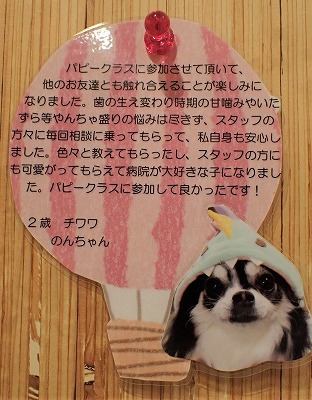 パピークラスに参加させて頂いて、
他のお友達とも触れ合えることが楽しみに
なりました。歯の生え変わり時期の甘噛みやいた
ずら等やんちゃ盛りの悩みは尽きず、スタッフの
方々に毎回相談に乗ってもらって、私自身も安心し
ました。色々と教えてもらったし、スタッフの方に
も可愛がってもらえて病院が大好きな子になりまし
た。パピークラスに参加して良かったです！
２歳　チワワ
のんちゃん